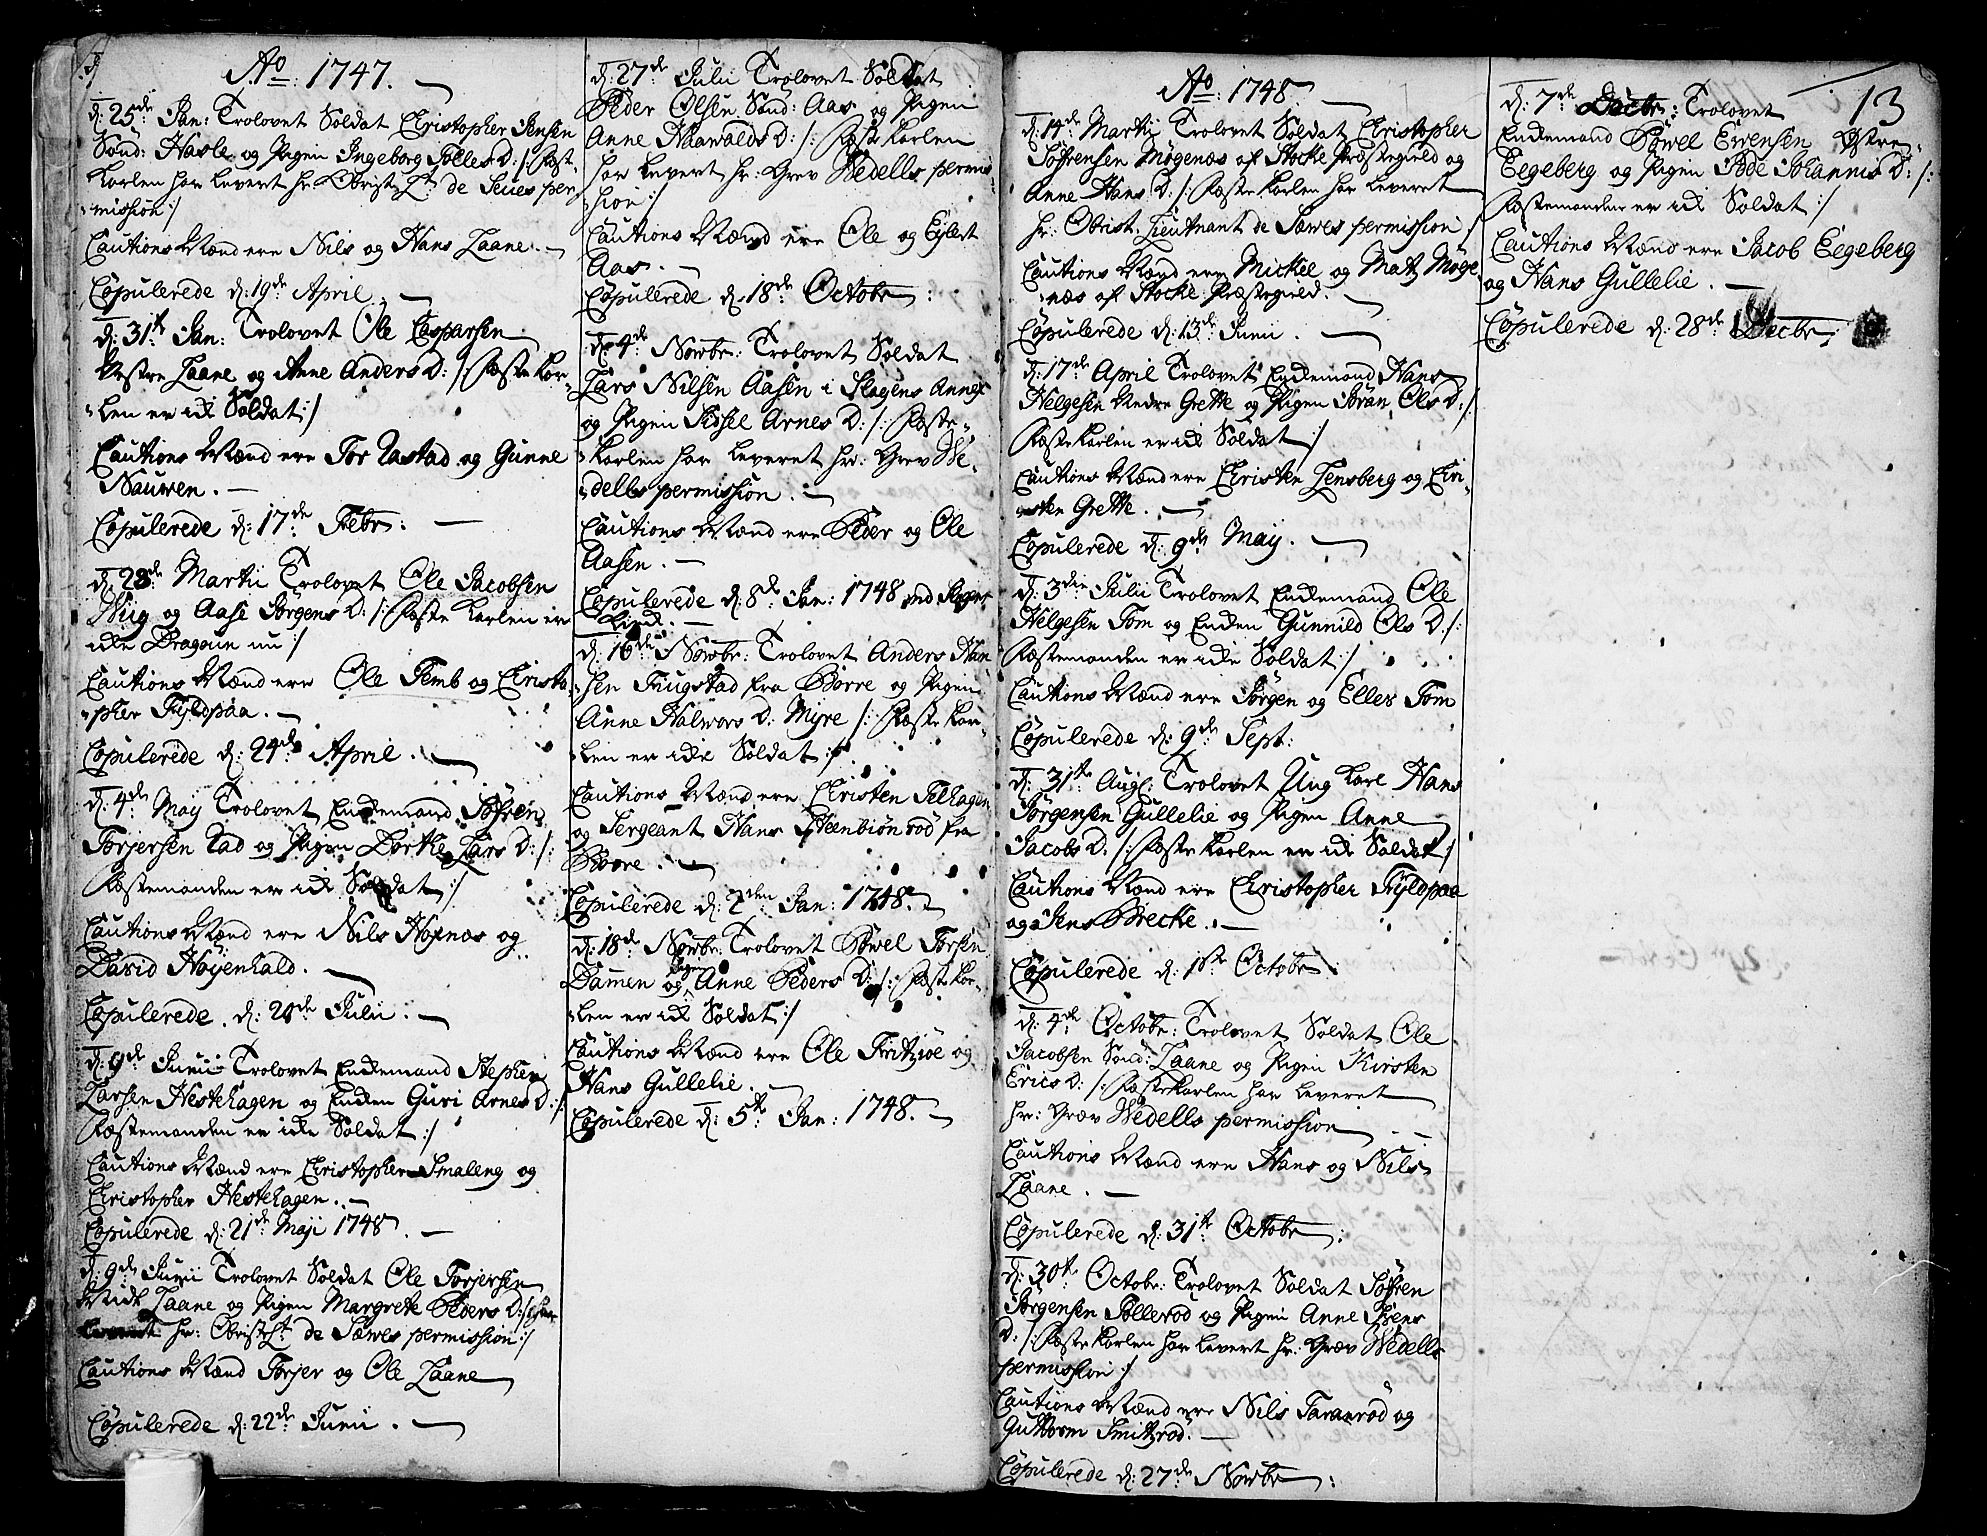 Ao: 1747.
d: 25de Jan: Trolovet Soldat Christopher Jensen
Sønd: Hasle og Pigen Ingeborg Tolles D: /: Fæste
Karlen har levert hr: Obrist Lt de Seues per
mission :/
Cautions Mænd ere Nils og Hans Laane.
Copulerede d: 19de April.
d: 31te Jan: Trolovet Ole Casparsen
Vestre Laane og Anne Anders D: /: Fæste Kar-
len er ick Soldat :/
Cautions Mænd ere Tor Rastad og Gunne
Nauwen.
Copulerede d: 17de Febr:
d: 28de Martii Trolovet Ole Jacobsen
Wiig og Aase Jørgens D: /: Fæste Karlen er
icke Dragoun nu :/
Cautions Mænd ere Ole Femb og Christo-
pher Fyldpaa.
Copulerede d: 24de April.
d: 4de May Trolovet Enckemand Søfren
Torjersen Rad og Pigen Dorthe Lars D: /:
Fæstemanden er ick Soldat :/
Cautions Mænd ere Nils Hoxnæs og
David Høyenhald.
Copulerede d: 20de Julii.
d: 9de Junii Trolovet Enckemand Stephen
Larsen Hestehagen og Encken Guri Arnes D: /:
Fæstemanden er icke Soldat :/
Cautions Mænd ere Christopher Smaleng og
Christopher Hestehagen.
Copulerede d: 21de Maji 1748.
d: 9de Junii Trolovet Soldat Ole Torjersen
Midt Laane og Pigen Margrethe Peders D: /: har
levert hr: Obrist Lt de Sæwes permission :/
Cautions Mænd Torjer og Ole Laane
Copulerede d: 22de Junii.
d: 27de Julii Trolovet Soldat
Peder Olsen Sønd: Aas og Pigen
Anne Haawalds D: /: Fæste Karlen
har levert hr: Grev Wedells permis
sion :/
Cautions Mænd ere Ole og Eylert
Aas.
Copulerede d: 18de Octobr:
d: 4de Novbr: Trolovet Soldat
Lars Nilsen Aasen i Slagens Annex
og Pigen Sidsel Arnes D: /: Fæste-
Karlen har leveret hr: Grev We-
dells permission.
Cautions Mænd ere Peder og Ole
Aasen.
Copulerede d: 8de Jan: 1748 ved Slagens
Kirck.
d: 16de Novbr: Trolovet Anders Han
sen Fugstad fra Borre og Pigen
Anne Halwors D: Myre /: Fæste Kar-
len er icke Soldat :/
Cautions Mænd ere Christen Felhagen
og Sergeant Hans Steenbiønrød fra
Borre.
Copulerede d: 2den Jan: 1748.
d: 18de Novbr: Trolovet Powel Torsen
Damen og Pigen Anne Peders D: /: Fæste Kar-
len er ick Soldat :/
Cautions Mænd ere Ole Fritzøe og
Hans Gullelie.
Copulerede d: 5te Jan: 1748.
Ao: 1748
d: 14de Martii Trolovet Soldat Christopher
Søfrensen Møgenæs af Stocke Præstegield og
Anne Hans D: /: Fæste Karlen har leveret
hr: Obrist. Lieutnant de Sæwes permission :/
Cautions Mænd ere Mickel og Matz Møge
næs af Stocke Præstegield.
Copulerede d: 13de Junii
d: 17de April Trolovet Enckemand Hans
Helgesen Nedre Grette og Pigen Jøran Ols D: /:
Fæste Karlen er ick Soldat :/
Cautions Mænd ere Christen Lensberg og Chri-
sten Grette.
Copulerede d: 9de May.
d: 3die Julii Trolovet Enckemand Ole
Helgesen Tom og Encken Gunnild Ols D: /:
Fæstemanden er icke Soldat :/
Cautions Mænd ere Jørgen og Elles Tom
Copulerede d: 9de Sept:
d: 31te Aug: Trolovet Ung Karl Hans
Jørgensen Gullelie og Pigen Anne
Jacobs D: /: Fæste Karlen er ick Soldat :/
Cautions Mænd ere Christopher Fyldpaa
og Jens Brecke.
Copulerede d: 1ste Octobr:
d: 4de Octobr: Trolovet Soldat Ole
Jacobsen Sønd: Laane og Pigen Kirsten
Erics D: /: Fæste Karlen har leveret
hr: Græv Wedells permission
Cautions Mænd ere Hans og Nils
Laane.
Copulerede d: 31te Octobr:
d: 30te Octobr: Trolovet Soldat Søfren
Jørgensen Tollerød og Pigen Anne Iwers
D: /: Fæste Karlen har levert hr: Græv Wedells
permission :/
Cautions Mænd ere Nils Taranrød og
Guttorm Smitzrød.
Copulerede d: 27de Novbr:
13
d: 7de Decbr: Trolovet
Enckemand Powel Ewensen Østre-
Eegeberg og Pigen Johannis D: /:
Fæstemanden er ick Soldat :/
Cautions Mænd ere Jacob Eegeberg
og Hans Gullelie.
Copulerede d: 28de Decbr: